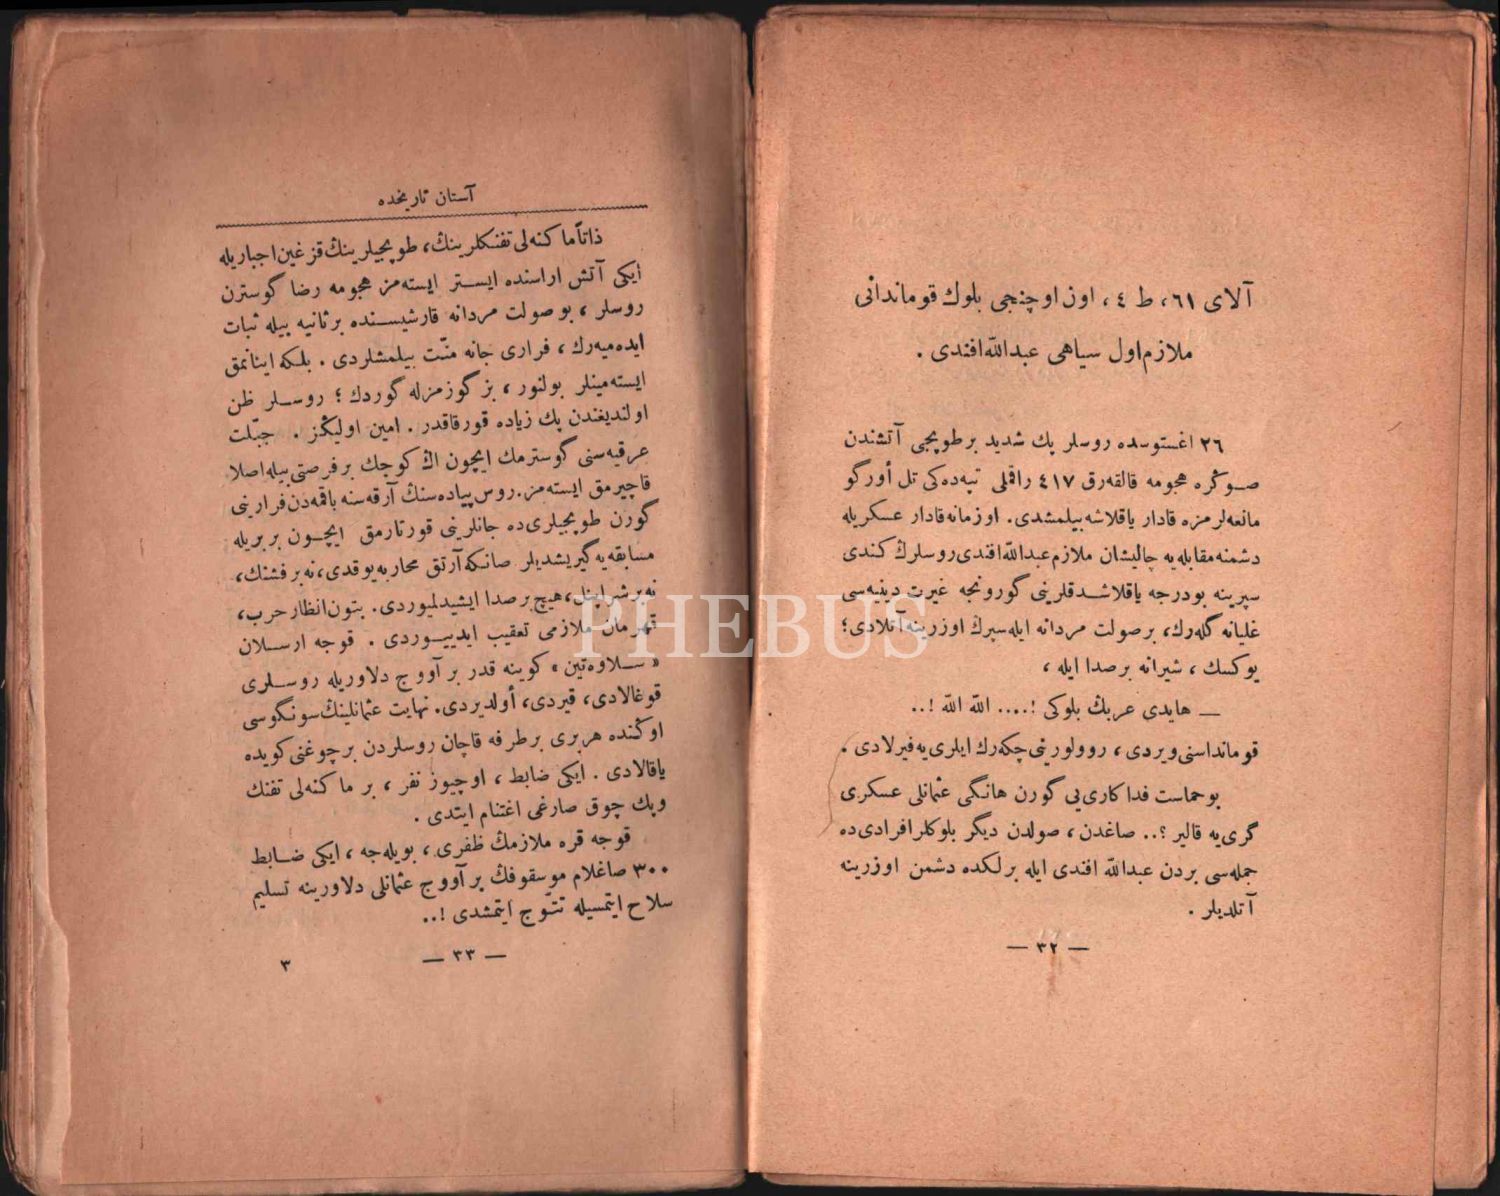 آلای ٦١، ط ٤، اون اوچنجی بلوك قوماندانی
ملازم اول سیاهی عبداللّٰه افندی .
٢٦ اغستوسده روسلر پك شدید بر طوپجی آتشندن
صوڭره هجومه قالقه‌رق ٤١٧ راقملی تپه‌ده‌كی تل أورگو
مانعه‌لرمزه قادار یاقلاشه بیلمشدی. او زمانه قادار عسكریله
دشمنه مقابله‌یه چالیشان ملازم عبداللّٰه افندی روسلرڭ كندی
سپرینه بودرجه یاقلاشدقلرینی گورونجه غیرت دینیه‌سی
غلیانه گله‌رك، بر صولت مردانه ایله سپرڭ اوزرینه آتلادی؛
یوكسك ، شیرانه بر صدا ایله ،
— هایدی عربڭ بلوكی !.... اللّٰه اللّٰه !..
قومانداسنی ویردی ، روولورینی چكه‌رك ایلری‌یه فیرلادی .
بو حماست فداكاری‌یی گورن هانگی عثمانلی عسكری
گری‌یه قالیر ؟.. صاغدن ، صولدن دیگر بلوكلر افرادی‌ده
جمله‌سی بردن عبداللّٰه افندی ایله برلكده دشمن اوزرینه
آتلدیلر .
— ٣٢ —
آستان تاریخده
ذاتاً ماكنه‌لی تفنكلرینڭ، طوپجیلرینڭ قزغین اجباریله
ایكی آتش اراسنده ایستر ایسته‌مز هجومه رضا گوسترن
روسلر ، بو صولت مردانه قارشیسنده بر ثانیه بیله ثبات
ایده‌میه‌رك ، فراری جانه منّت بیلمشلردی . بلكه اینانمق
ایسته‌مینلر بولنور ، بز گوزمزله گوردك ؛ روسلر ظن
اولندیغندن پك زیاده قورقاقدر . امین اولیڭز . جبّلت
عرقیه‌سنی گوسترمك ایچون اڭ كوچك بر فرصتی بیله اصلا
قاچیرمق ایسته‌مز. روس پیاده‌سنڭ آرقه‌سنه باقمه‌دن فرارینی
گورن طوپجیلری‌ده جانلرینی قورتارمق ایچون بربریله
مسابقه‌یه گیریشدیلر صانكه آرتق محاربه یوقدی، نه بر فشنك،
نه بر شراپنل، هیچ بر صدا ایشیدلمیوردی. بتون انظار حرب،
قهرمان ملازمی تعقیب ایدییوردی . قوجه ارسلان
« سلاوه‌تین » كوینه قدر بر آووج دلاوریله روسلری
قوغالادی، قیردی، أولدیردی. نهایت عثمانلینڭ سونگوسی
اوڭنده هر بری بر طرفه قاچان روسلردن بر چوغنی كویده
یاقالادی . ایكی ضابط ، اوچیوز نفر ، بر ماكنه‌لی تفنك
و پك چوق صارغی اغتنام ایتدی .
قوجه قره ملازمڭ ظفری ، بویله‌جه ، ایكی ضابط
٣٠٠ صاغلام موسقوفڭ بر آووج عثمانلی دلاورینه تسلیم
سلاح ایتمسیله تتوّج ایتمشدی !..
— ٣٣ —
٣
PHEBUS